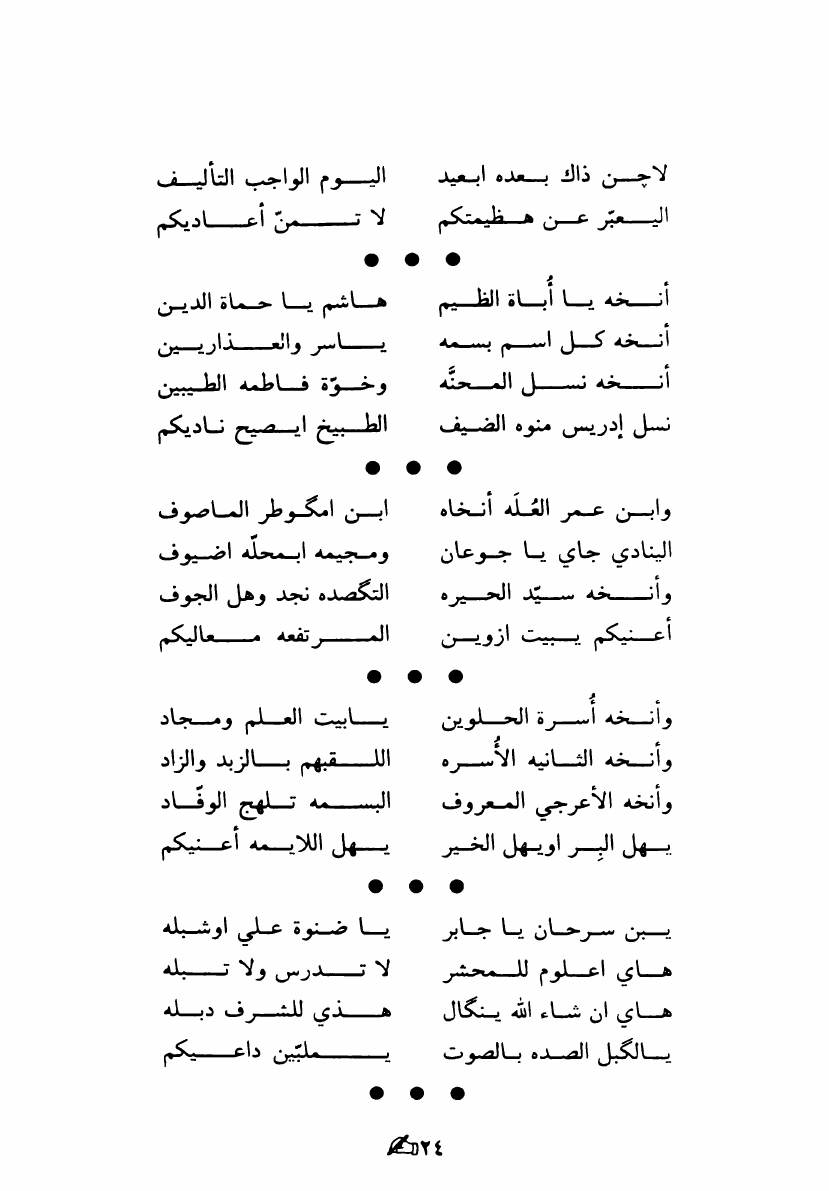 لاچن ذاك بعده ابعيد اليوم الواجب التأليف
اليعبّر عن هظيمتكم لا تمنّ أعاديكم
● ● ●
أنخه يا أُباة الظيم هاشم يا حماة الدين
أنخه كل اسم بسمه ياسر والعذاريين
أنخه نسل المحنَّه وخوّة فاطمه الطيبين
نسل إدريس منوه الضيف الطبيخ ايصيح ناديكم
● ● ●
وابن عمر العُلَه أنخاه ابن امگوطر الماصوف
الينادي جاي يا جوعان ومجيمه ابمحلّه اضيوف
وأنخه سيّد الحيره التگصده نجد وهل الجوف
أعنيكم يبيت ازوين المرتفعه معاليكم
● ● ●
وأنخه أُسرة الحلوين يابيت العلم ومجاد
وأنخه الثانيه الأُسره اللقبهم بالزبد والزاد
وأنخه الأعرجي المعروف البسمه تلهج الوفّاد
يهل البِر اويهل الخير يهل اللايمه أعنيكم
● ● ●
يبن سرحان يا جابر يا ضنوة علي اوشبله
هاي اعلوم للمحشر لا تدرس ولا تبله
هاي ان شاء الله ينگال هذي للشرف دبله
يالگبل الصده بالصوت يملبّين داعيكم
● ● ●
٢٤